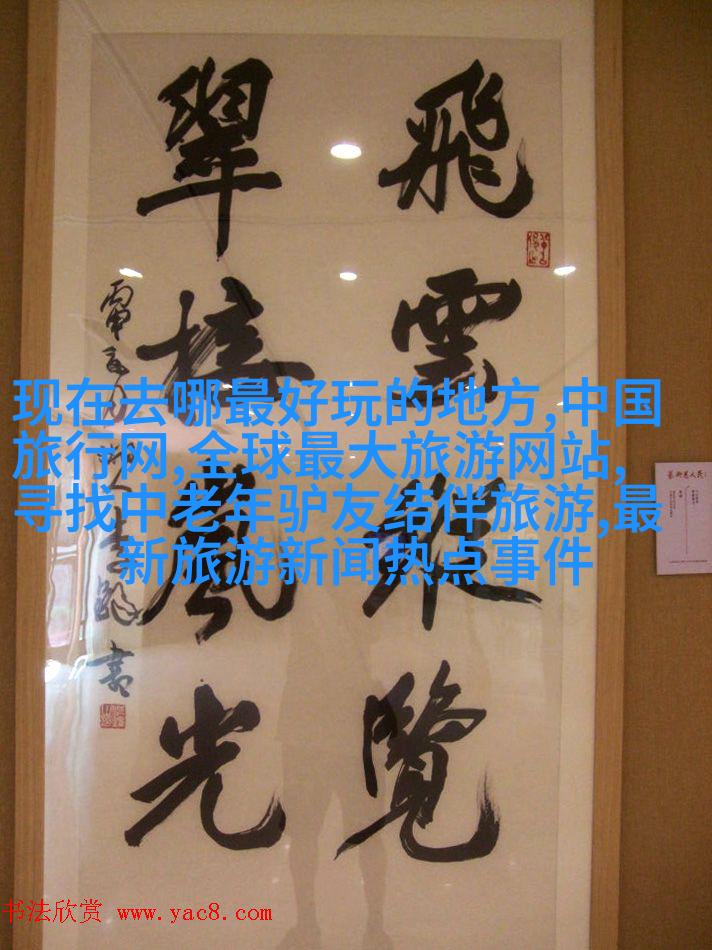 飛雲縱覽
翠風光
書
现在去哪最好玩的地方,中国
旅行网,全球最大旅游网站,
寻找中老年驴友结伴旅游,最
新旅游新闻热点事件
书法欣赏 www.yac8.com